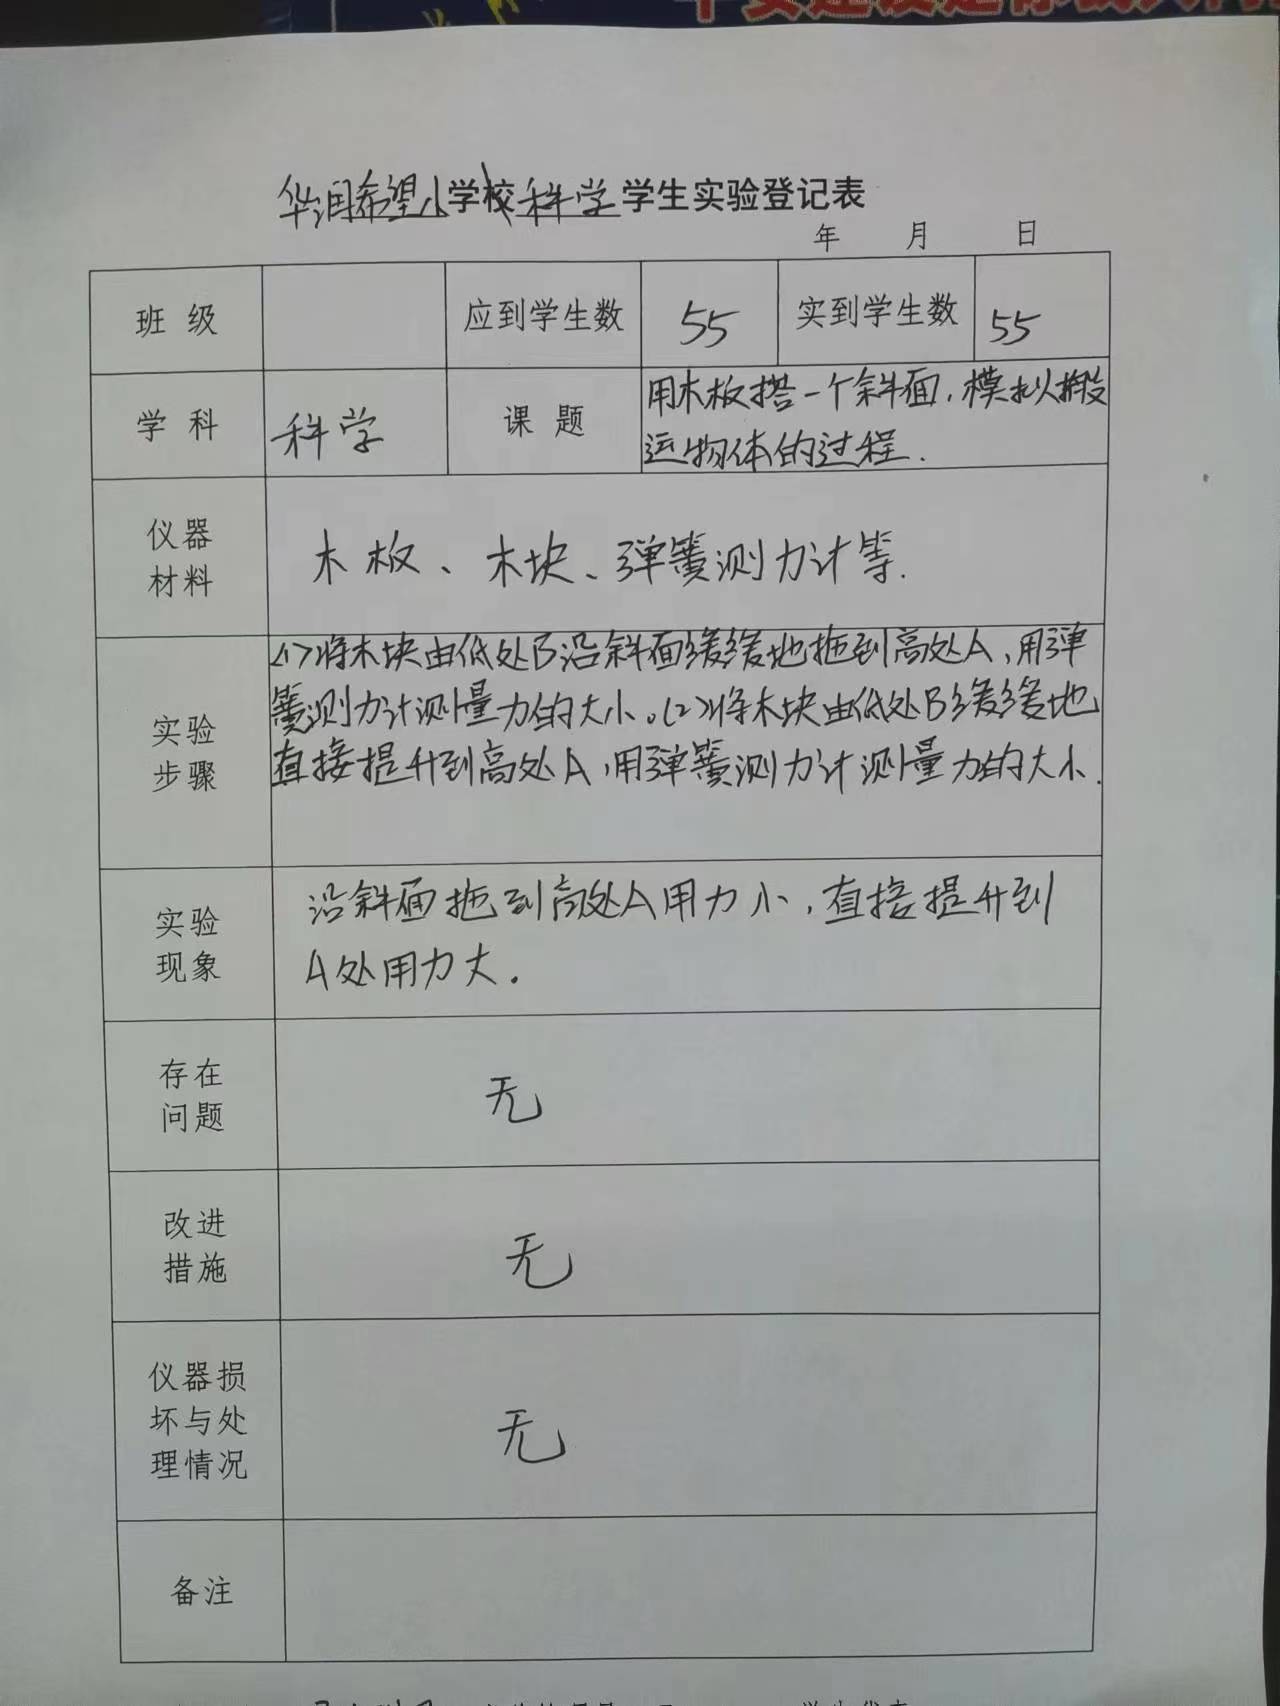 华润希望小学校科学学生实验登记表
年 月 日
班级 应到学生数 55 实到学生数 55
学科 科学 课题 用木板搭一个斜面,模拟搬
运物体的过程.
仪器
材料
木板、木块、弹簧测力计等.
实验
步骤
(1)将木块由低处B沿斜面缓缓地拖到高处A,用弹
簧测力计测量力的大小。(2)将木块由低处B缓缓地
直接提升到高处A,用弹簧测力计测量力的大小.
实验
现象
沿斜面拖到高处A用力小,直接提升到
A处用力大.
存在
问题
无
改进
措施
无
仪器损
坏与处
理情况
无
备注